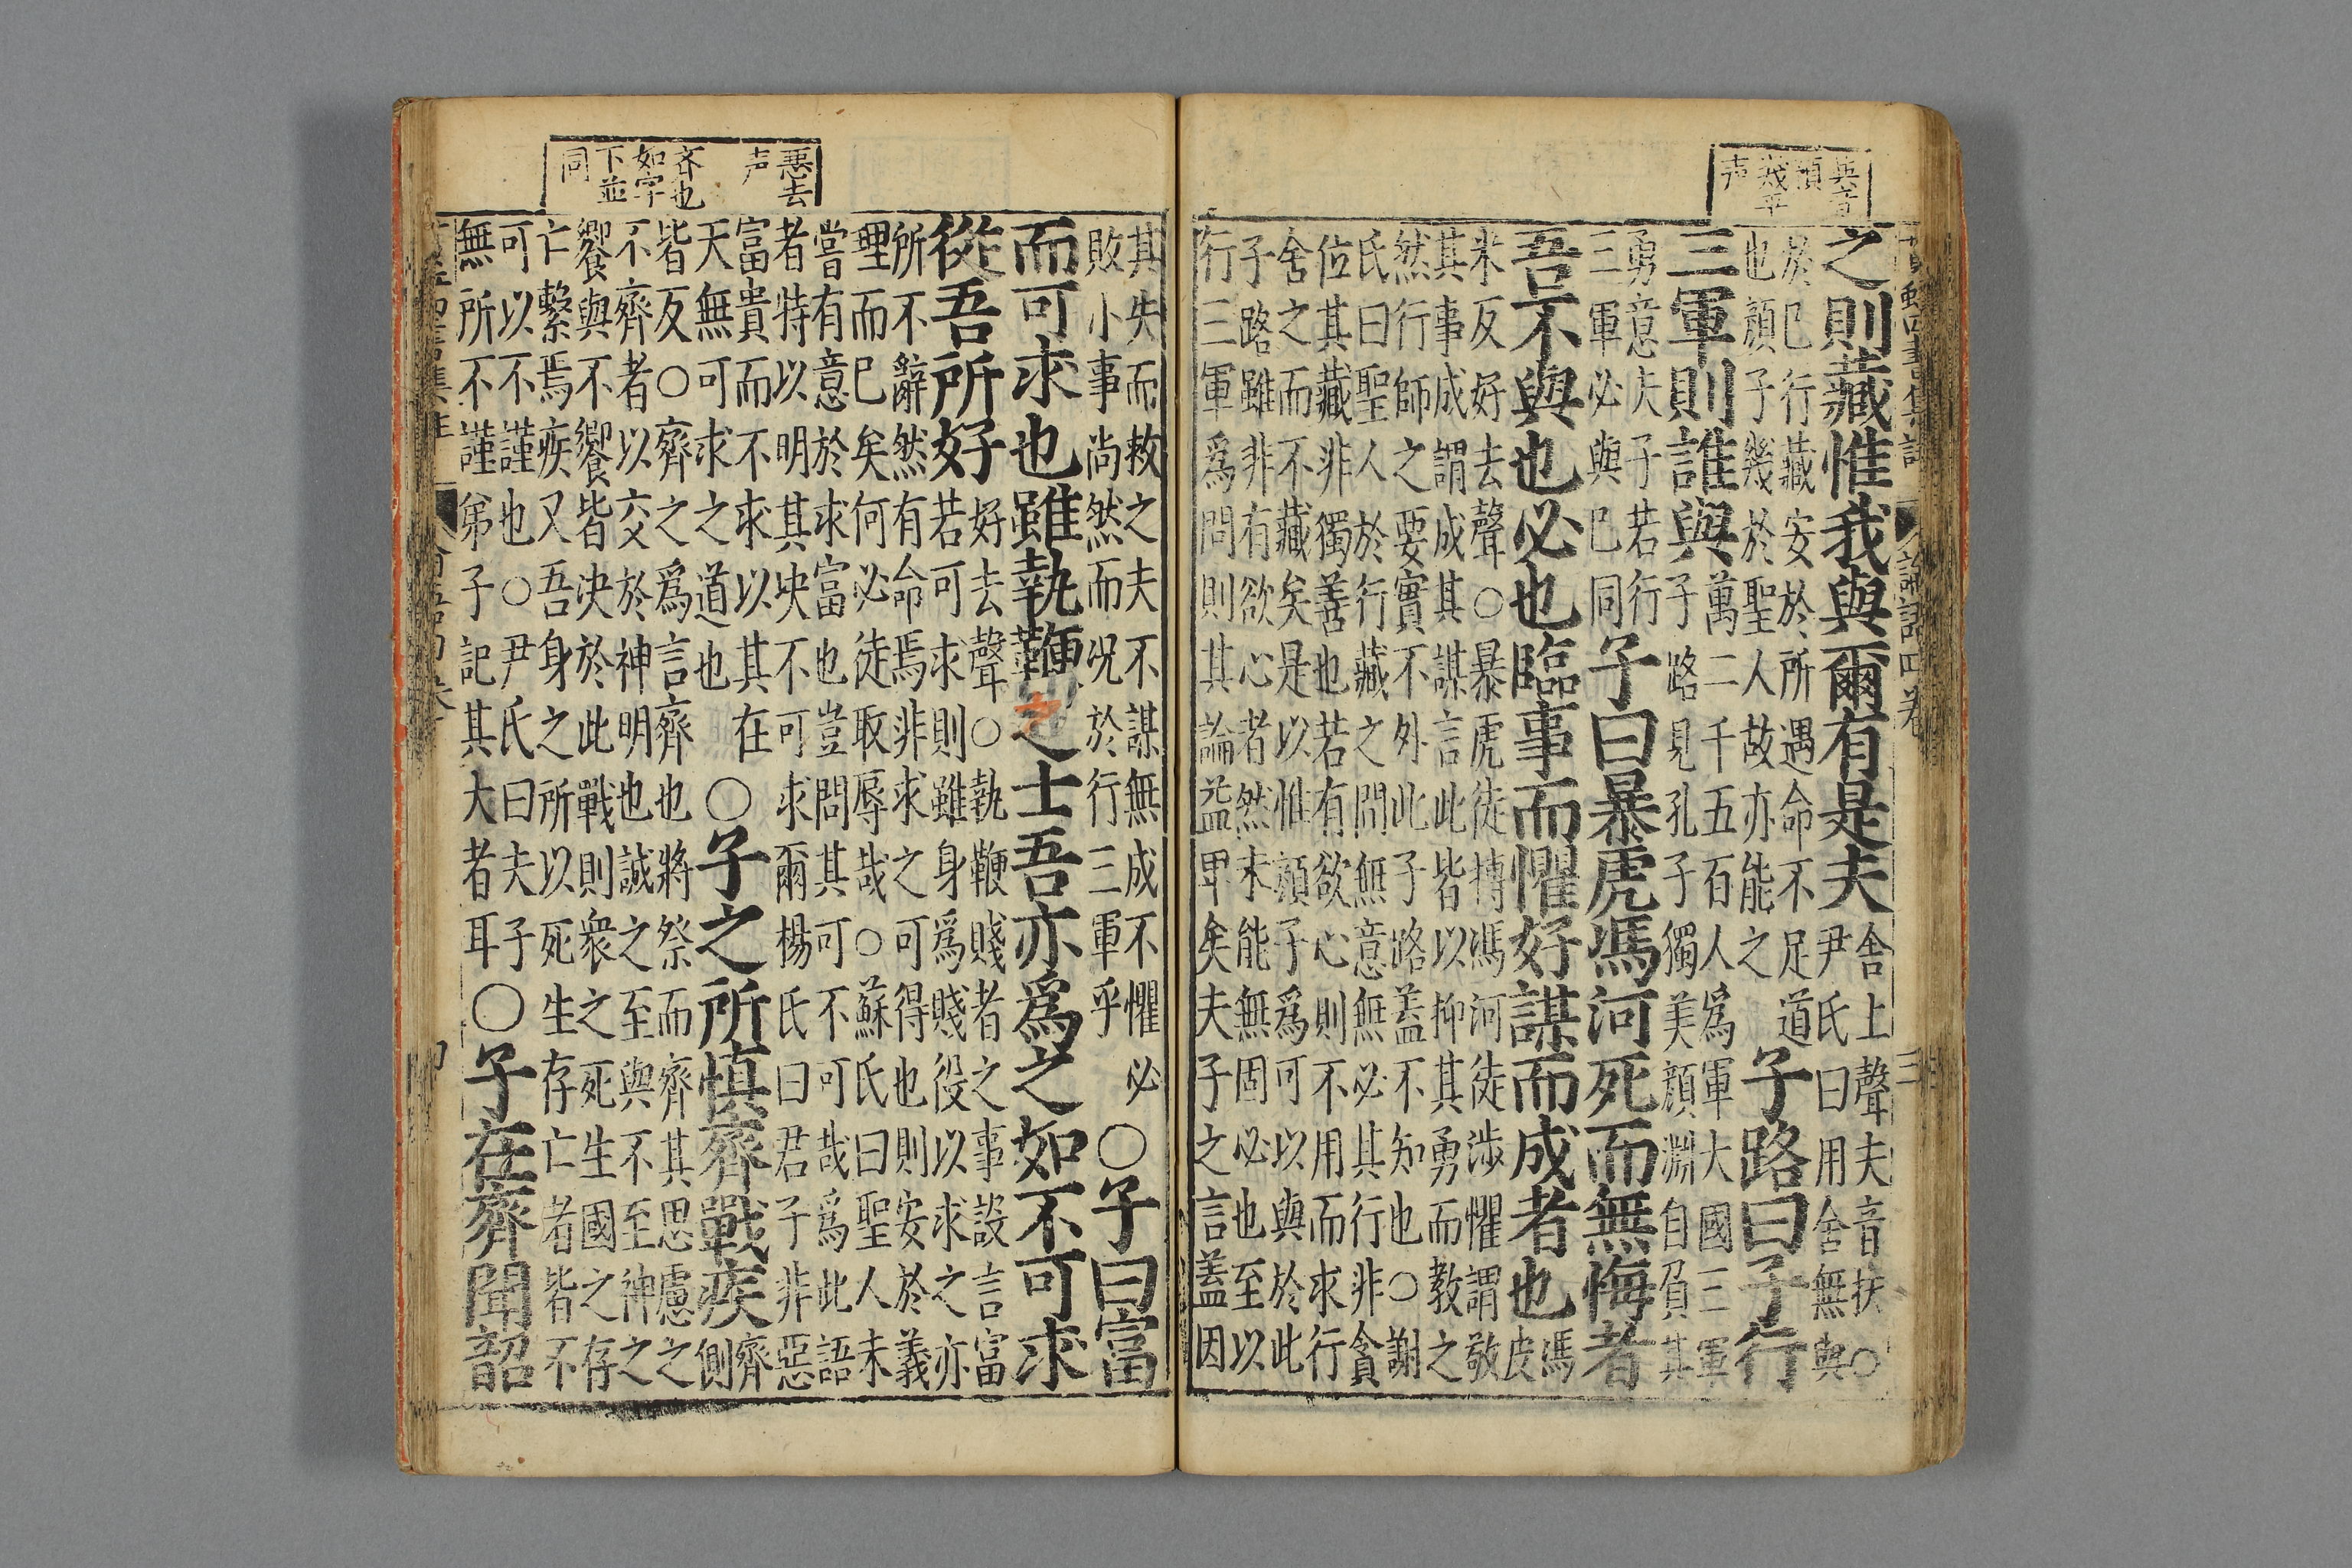 與音
預
幾平
声
四書集註 論語四卷 三
之則藏惟我與爾有是夫 舍上聲夫音扶○
尹氏曰用舍無與
於己行藏安於所遇命不足道
也顏子幾於聖人故亦能之
子路曰子行
三軍則誰與 萬二千五百人爲軍大國三軍
子路見孔子獨美顏淵自負其
勇意夫子若行
三軍必與己同
子曰暴虎馮河死而無悔者
吾不與也必也臨事而懼好謀而成者也 馮
皮
氷反好去聲○暴虎徒搏馮河徒涉懼謂敬
其事成謂成其謀言此皆以抑其勇而教之
然行師之要實不外此子路蓋不知也○謝
氏曰聖人於行藏之間無意無必其行非貪
位其藏非獨善也若有欲心則不用而求行
舍之而不藏矣是以惟顏子爲可以與於此
子路雖非有欲心者然未能無固必也至以
行三軍爲問則其論益卑矣夫子之言蓋因
悪去
声
齐也
如字
下並
同
其失而救之夫不謀無成不懼必
敗小事尚然而況於行三軍乎
○子曰富
而可求也雖執鞭之士吾亦爲之如不可求
從吾所好 好去聲○執鞭賤者之事設言富
若可求則雖身爲賤役以求之亦
所不辭然有命焉非求之可得也則安於義
理而已矣何必徒取辱哉○蘇氏曰聖人未
嘗有意於求富也豈問其可不可哉爲此語
者特以明其决不可求爾楊氏曰君子非惡
富貴而不求以其在
天無可求之道也
○子之所慎齊戰疾 齊
側
皆反○齊之爲言齊也將祭而齊其思慮之
不齊者以交於神明也誠之至與不至神之
饗與不饗皆决於此戰則衆之死生國之存
亡繫焉疾又吾身之所以死生存亡者皆不
可以不謹也○尹氏曰夫子
無所不謹弟子記其大者耳
○子在齊聞韶